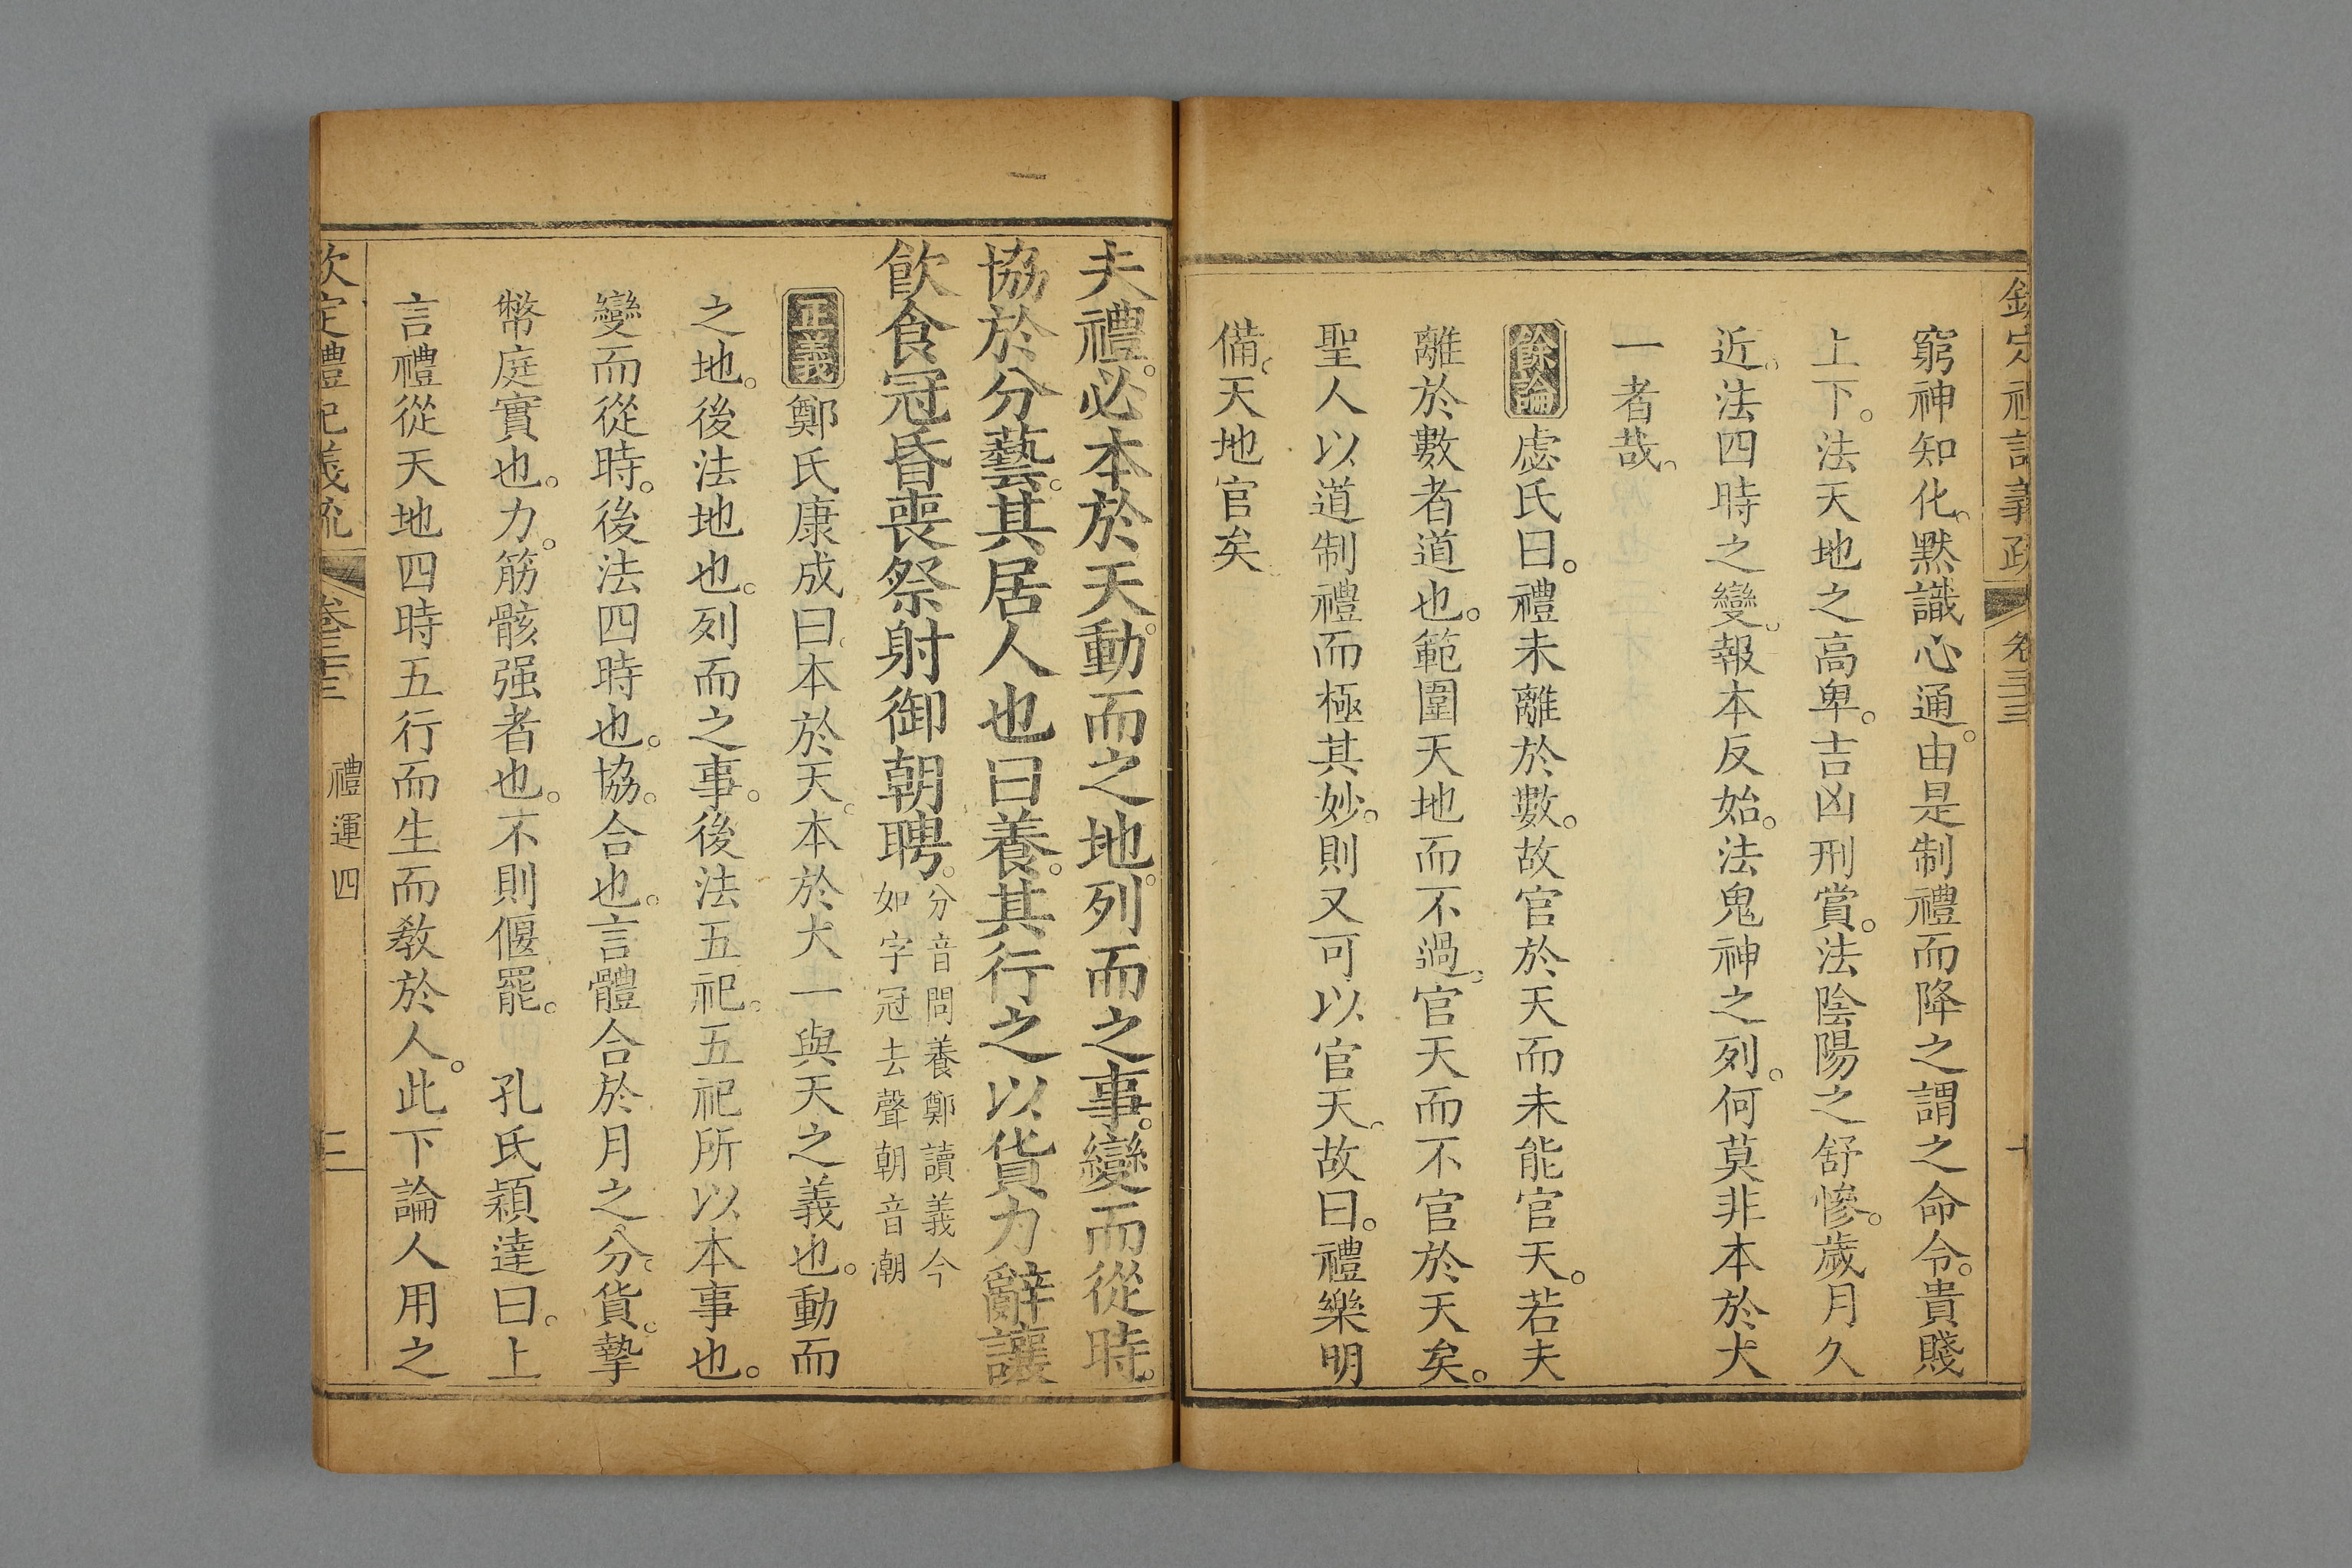 窮神知化。默識心通。由是制禮而降之謂之命令。貴賤
上下。法天地之高卑。吉凶刑賞。法陰陽之舒慘。歲月久
近。法四時之變。報本反始。法鬼神之列。何莫非本於大
一者哉。
餘論 處氏曰。禮未離於數。故官於天而未能官天。若夫
離於數者道也。範圍天地而不過。官天而不官於天矣。
聖人以道制禮而極其妙。則又可以官天。故曰。禮樂明
備。天地官矣
夫禮。必本於天。動而之地。列而之事。變而從時。
協於分藝。其居人也曰養。其行之以貨力辭讓
飲食冠昏喪祭射御朝聘。
分音問養鄭讀義今
如字冠去聲朝音潮
正義 鄭氏康成曰。本於天。本於大一與天之義也。動而
之地。後法地也。列而之事。後法五祀。五祀所以本事也。
變而從時。後法四時也。協。合也。言體合於月之分。貨。摯
幣庭實也。力。筋骸强者也。不則偃罷。 孔氏穎達曰。上
言禮從天地四時五行而生而敎於人。此下論人用之
欽定禮記義疏 卷三十三 禮運四